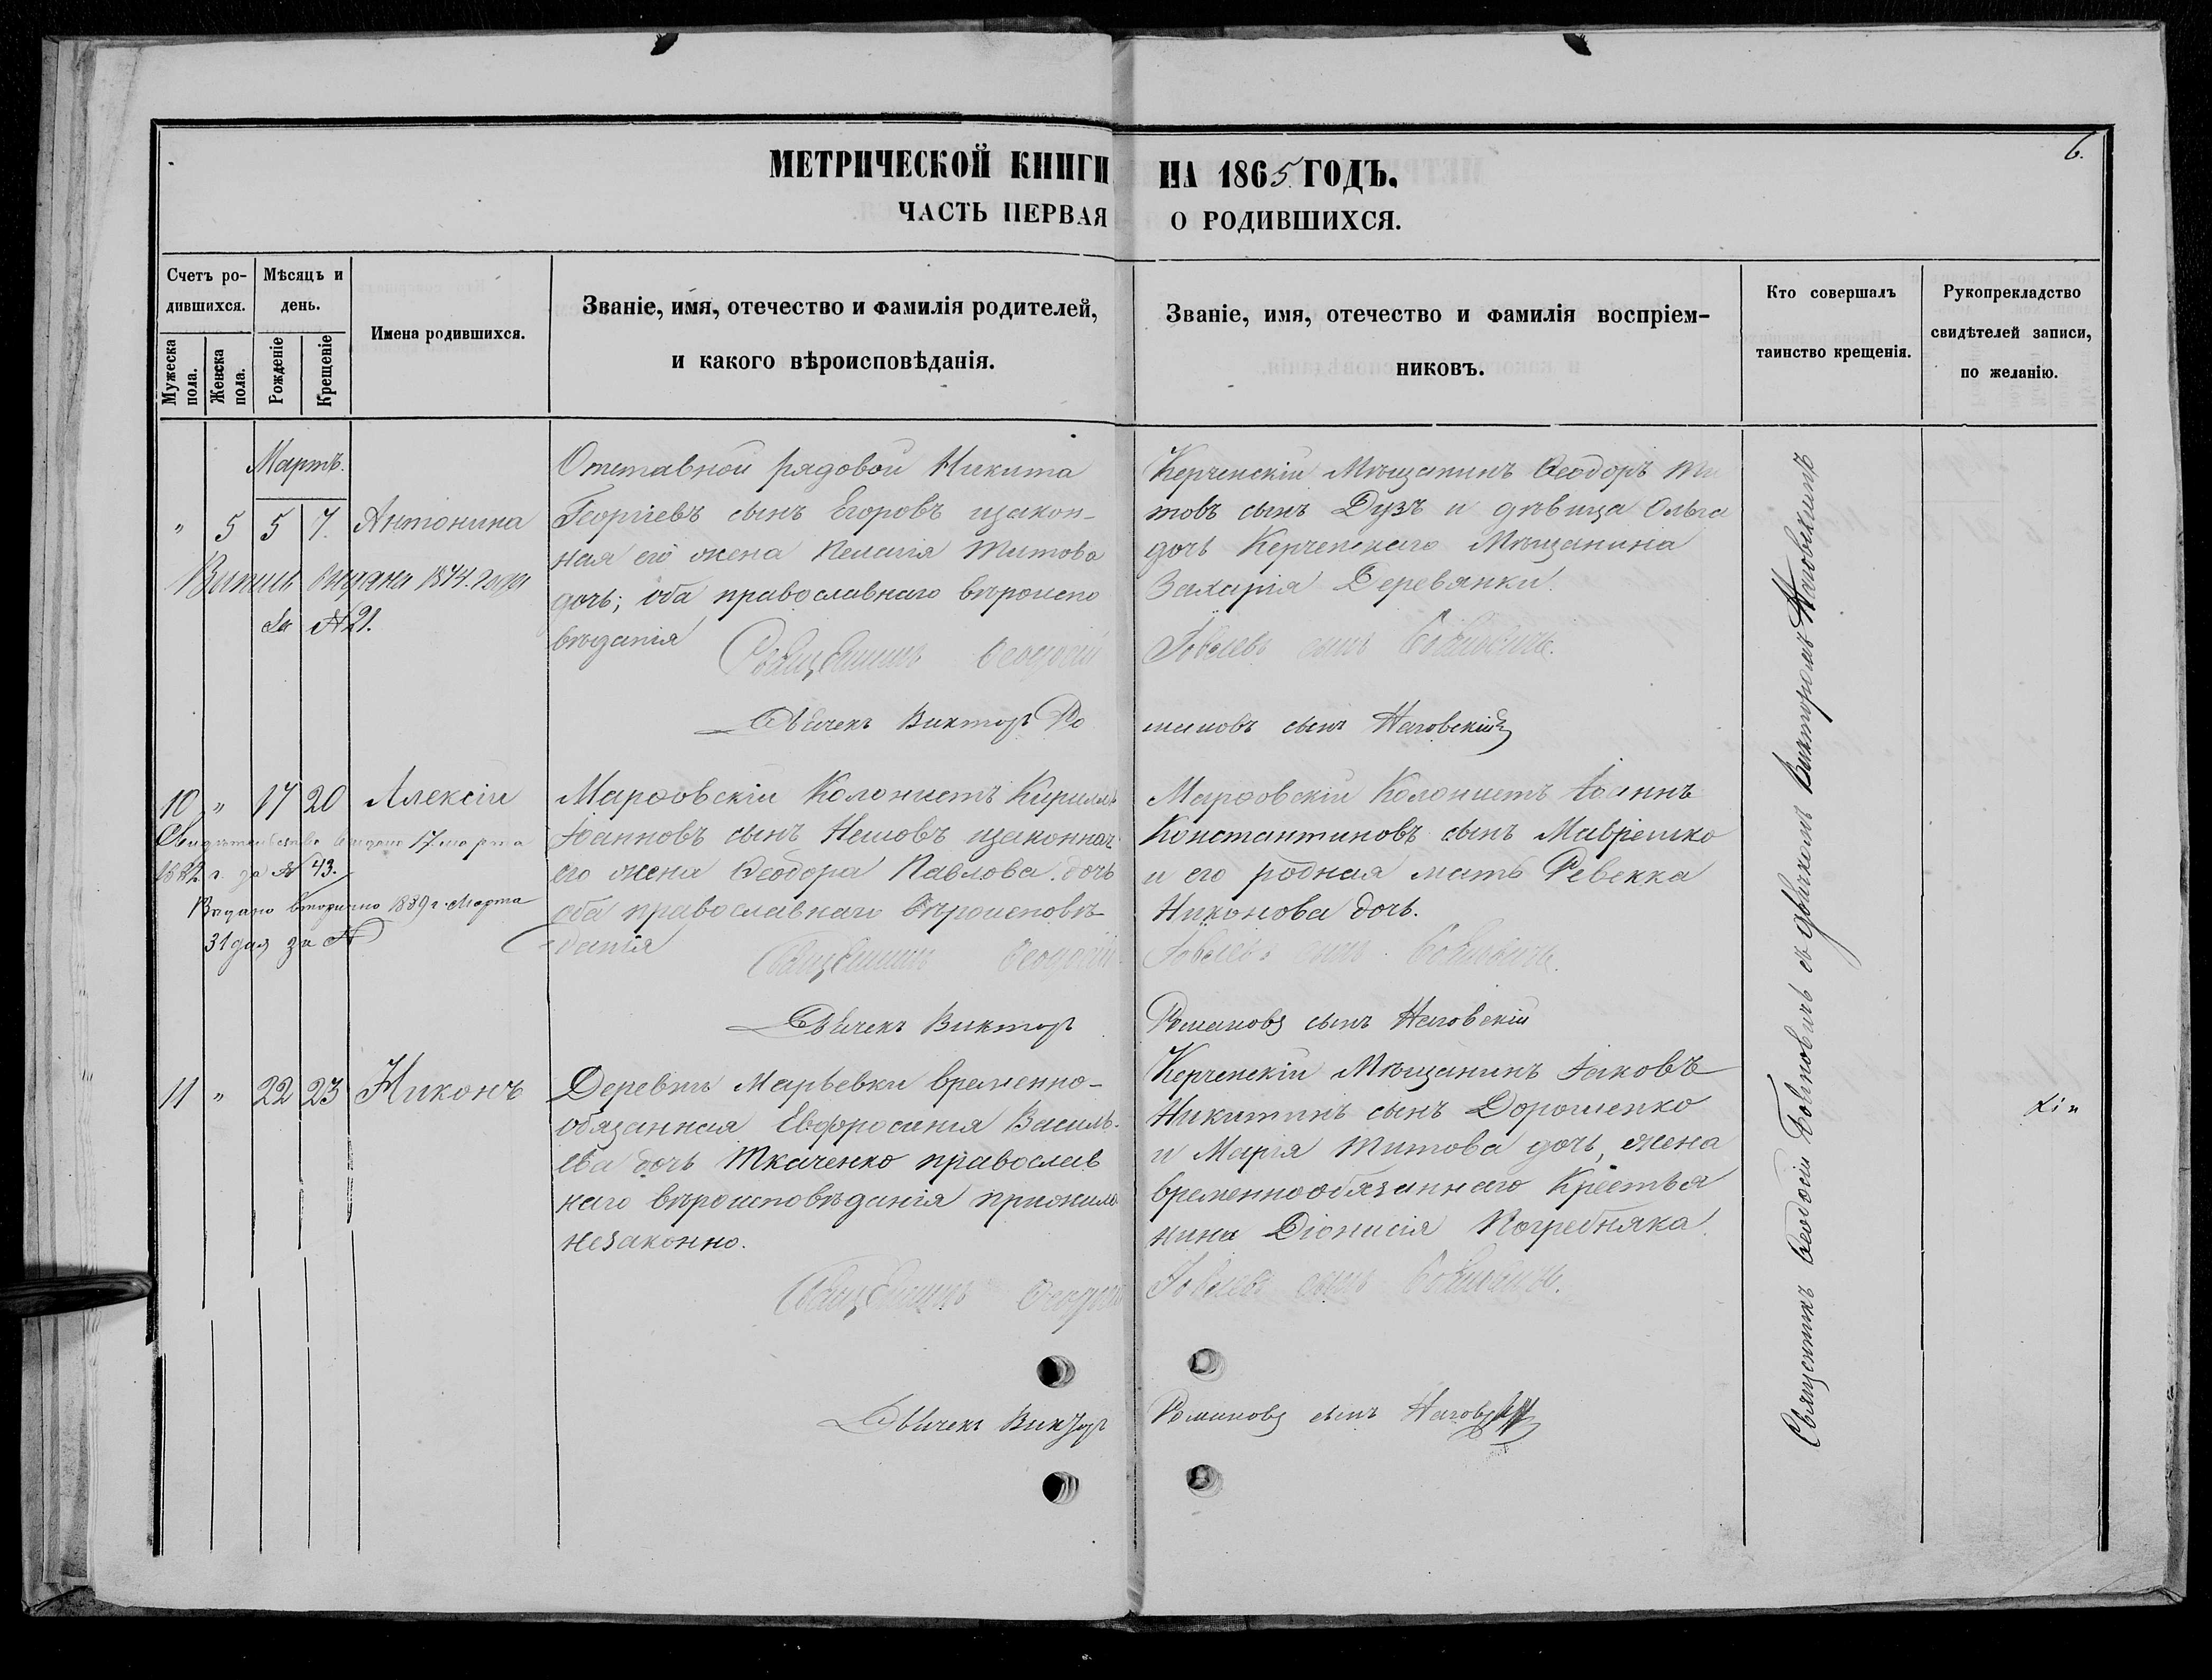 6.
МЕТРИЧЕСКОЙ КНИГИ НА 1865 ГОДЪ.
ЧАСТЬ ПЕРВАЯ О РОДИВШИХСЯ.
Счетъ ро-
дившихся.
Мужеска пола.
Женска пола.
Мѣсяцъ и
день.
Рожденіе
Крещеніе
Имена родившихся.
Званіе, имя, отечество и фамилія родителей,
и какого вѣроисповѣданія.
Званіе, имя, отечество и фамилія воспріем-
никовъ.
Кто совершалъ
таинство крещенія.
Рукопрекладство
свидѣтелей записи,
по желанію.
Мартъ.
" 5 5 7. Антонина
выдана 1874. года
за № 21.
Отставной рядовой Никита
Георгіевъ сынъ Егоровъ изакон-
ная его жена Пелагія Титова
дочь; оба православнаго вѣроиспо
вѣданія
Священникъ Ѳеодосій
Дьячекъ Викторъ Ро
Керченскій Мѣщанинъ Ѳеодоръ Ти
товъ сынъ Дузъ и дѣвица Ольга
дочь Керченскаго Мѣщанина
Захарія Деревянки.
сынъ
мановъ сынъ Наговскій
10 " 17 20 Алексій
Свидѣтельство выдано 17 марта
1882 г. за № 43.
Выдано вторично 1889 г. Марта
31 дня за №
Марфовскій Колонистъ Кириллъ
Іоанновъ сынъ изаконная
его жена Ѳеодора Павлова дочь
оба православнаго вѣроисповѣ-
данія
Священникъ Ѳеодосій
Дьячекъ Викторъ
Марфовскій Колонистъ Іоаннъ
Константиновъ сынъ
и его родная мать Ревекка
Никонова дочь.
сынъ
Романовъ сынъ Наговскій
11 " 22 23 Никонъ
Деревни Марьевки временно-
обязанная Евфросинія Василь-
ева дочь Ткаченко православ
наго вѣроисповѣданія прижила
незаконно.
Священникъ Ѳеодосій
Дьячекъ Викторъ
Керченскій Мѣщанинъ Іаковъ
Никитинъ сынъ Дорошенко
и Марія Титова дочь, жена
временнообязаннаго Крестья
нина Діонисія Погребняка.
сынъ
Романовъ сынъ
Священникъ Ѳеодосій съ дьячкомъ Викторомъ Наговскимъ